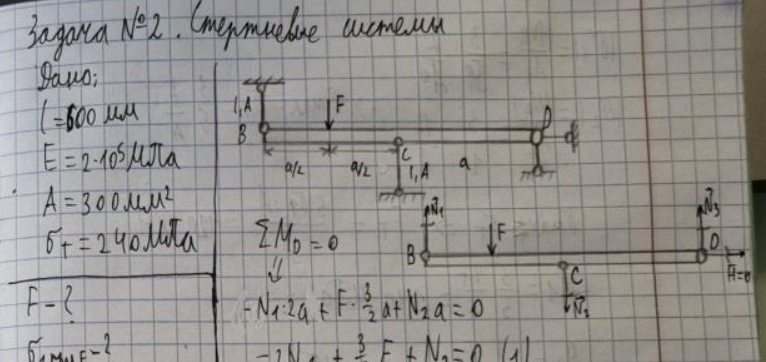 Задача №2. Стержневые системы
Дано:
l = 600 мм
E = 2·10⁵ МПа
A = 300 мм²
σт = 240 МПа
F - ?
l, A
B
F
D
a/2
a/2
C
l, A
a
N₁
F
N₃
B
D
C
N₂
ΣM_D = 0
⇓
-N₁·2a + F·3/2 a + N₂a = 0
-2N₁ + 3/2 F + N₂ = 0 (1)